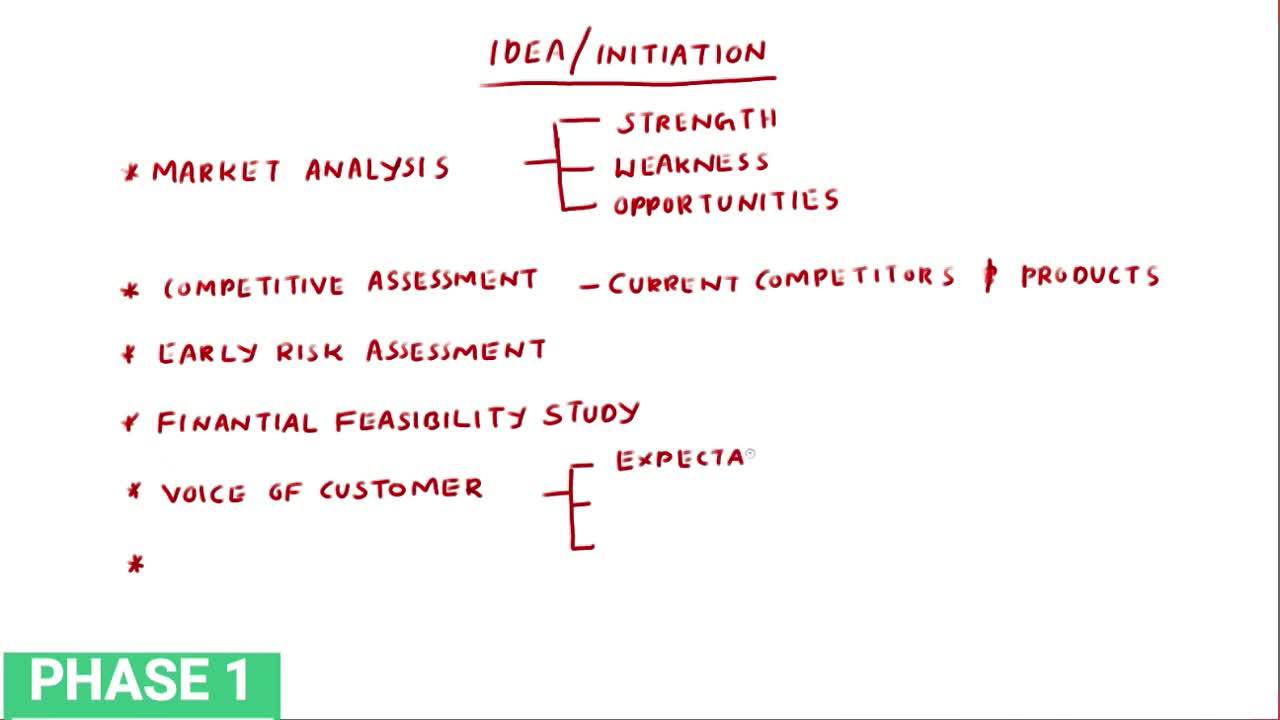 IDEA/INITIATION
STRENGTH
* MARKET ANALYSIS
WEAKNESS
OPPORTUNITIES
* COMPETITIVE ASSESSMENT – CURRENT COMPETITORS & PRODUCTS
* EARLY RISK ASSESSMENT
* FINANTIAL FEASIBILITY STUDY
EXPECTA
* VOICE OF CUSTOMER
*
PHASE 1